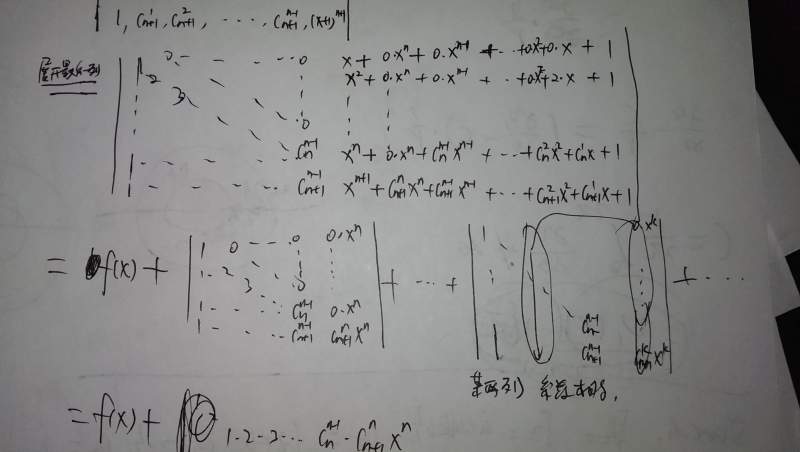 1, C¹ₙ₊₁, C²ₙ₊₁, ····, Cⁿ⁻¹ₙ₊₁, (x+1)ⁿ⁺¹
展开最后一列
1 0 - - - 0 x + 0·xⁿ + 0·xⁿ⁻¹ + ··+0·x²+0·x + 1
2 x² + 0·xⁿ + 0·xⁿ⁻¹ + ··+0·x²+2·x + 1
3
0
1 - - - - Cⁿ⁻¹ₙ xⁿ + 0·xⁿ + Cⁿ⁻¹ₙ xⁿ⁻¹ + ··+ C²ₙx² + C¹ₙx + 1
1 - - - - Cⁿ⁻¹ₙ₊₁ xⁿ⁺¹ + Cⁿₙ₊₁xⁿ + Cⁿ⁻¹ₙ₊₁xⁿ⁻¹ + ··+ C²ₙ₊₁x² + C¹ₙ₊₁x + 1
= f(x) + | 1 0 - - 0 0·xⁿ | + ··· + | 1 0 xᵏ | + ···
1 2
3 0
1 - - - Cⁿ⁻¹ₙ 0·xⁿ Cⁿ⁻¹ₙ
1 - - - Cⁿ⁻¹ₙ₊₁ Cⁿₙ₊₁xⁿ 1 Cⁿ⁻¹ₙ₊₁ Cᵏₙ₊₁xᵏ
某两列 系数相同,
= f(x) + 1·2·3··· Cⁿ⁻¹ₙ · Cⁿₙ₊₁xⁿ